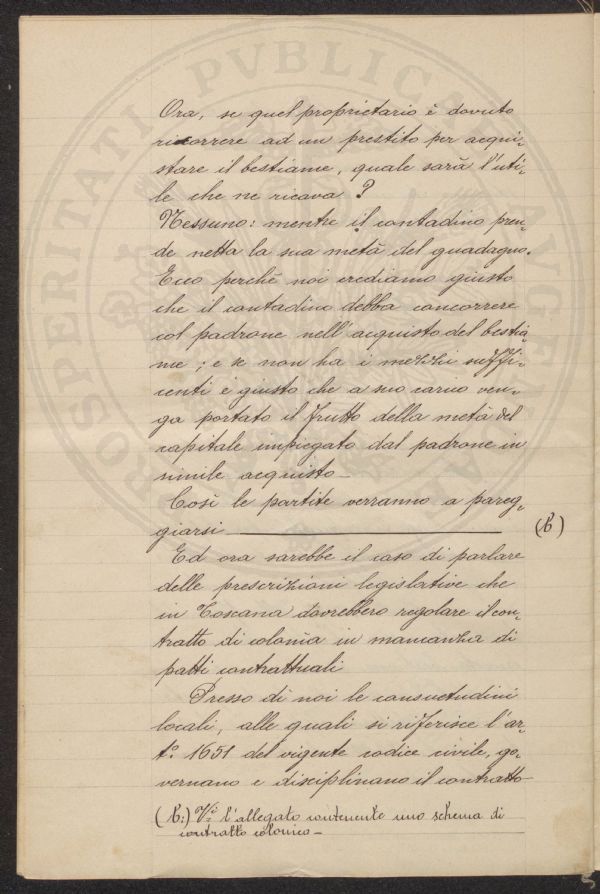 Ora, se quel proprietario è dovuto
ricorrere ad un prestito per acqui-
stare il bestiame, quale sarà l'uti-
le che ne ricava?
Nessuno: mentre il contadino pren-
de netta la sua metà del guadagno.
Ecco perchè noi crediamo giusto
che il contadino debba concorrere
col padrone nell'acquisto del bestia-
me; e se non ha i mezzi suffi-
centi è giusto che a suo carico ven-
ga portato il frutto della metà del
capitale impiegato dal padrone in
simile acquisto_
Così le partite verranno a pareg-
giarsi (b)
Ed ora sarebbe il caso di parlare
delle prescrizioni legislative che
in Toscana dovrebbero regolare il con-
tratto di colonìa in mancanza di
patti contrattuali
Presso di noi le consuetudini
locali, alle quali si riferisce l'ar-
t.º 1651 del vigente codice civile, go-
vernano e disciplinano il contratto
(b:) Vi l'allegato contenente uno schema di
contratto colonico_
PROSPERITATI PVBLICAE AVGENDAE